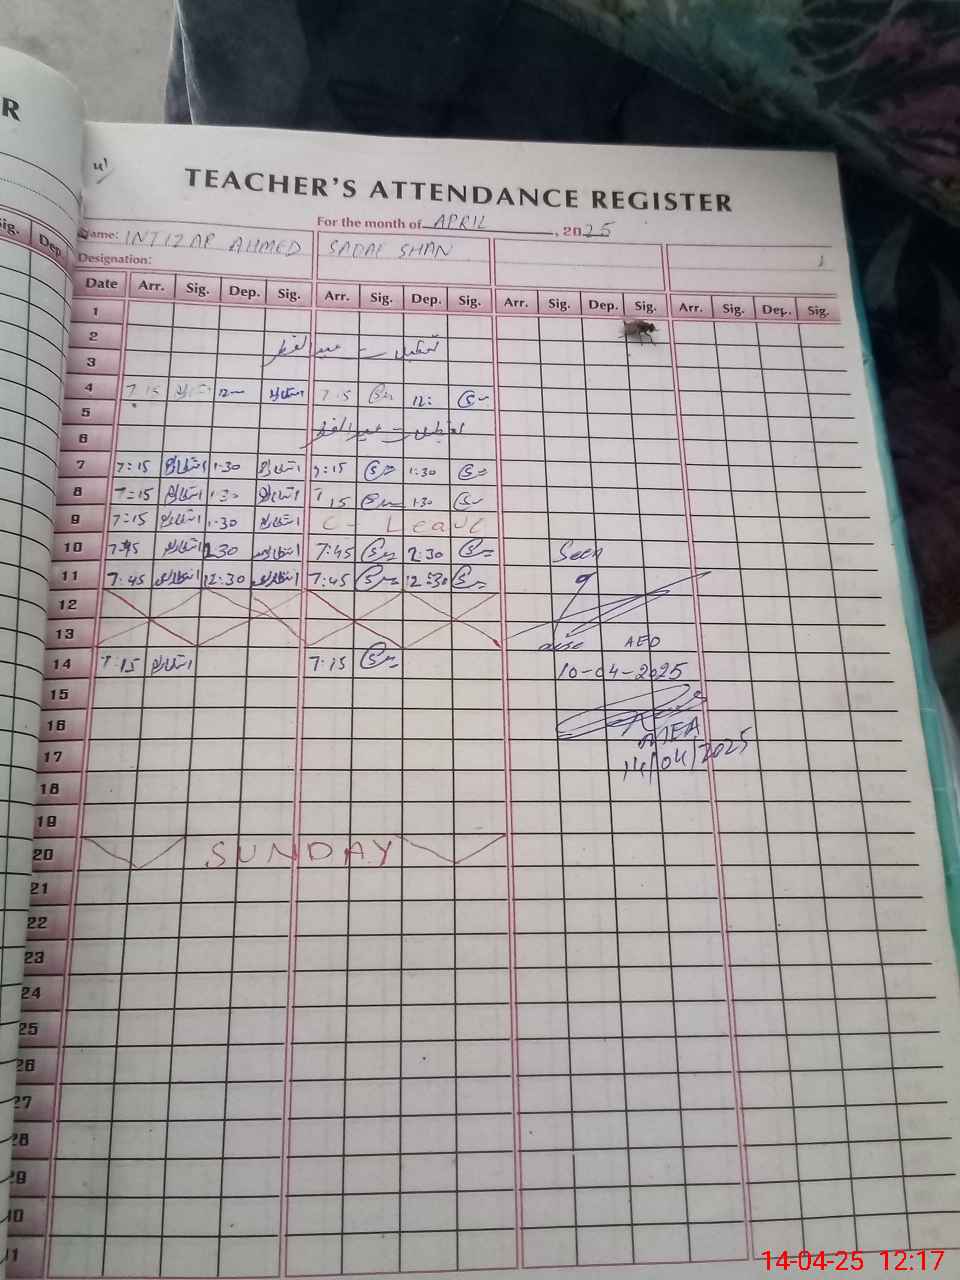 R
TEACHER'S ATTENDANCE REGISTER
For the month of APRIL, 2025
Name: INTIZAR AHMED SADAF SHAN
Designation:
Sig. Dep.
Date Arr. Sig. Dep. Sig. Arr. Sig. Dep. Sig. Arr. Sig. Dep. Sig. Arr. Sig. Dep. Sig.
1
2
تعطیلات عید الفطر
3
4 7:15 انتظار 12 انتظار 7:15 12:
5
6 تعطیلات عید الفطر
7 7:15 انتظار 1:30 انتظار 7:15 1:30
8 7:15 انتظار 1:30 انتظار 7:15 1:30
9 7:15 انتظار 1:30 انتظار C- Leave
10 7:45 انتظار 2:30 انتظار 7:45 2:30 Seen
11 7:45 انتظار 12:30 انتظار 7:45 12:30
12
13 AEO
14 7:15 انتظار 7:15 10-04-2025
15
16
17 14/04/2025
18
19
20 SUNDAY
21
22
23
24
25
26
27
28
29
30
31
14-04-25 12:17